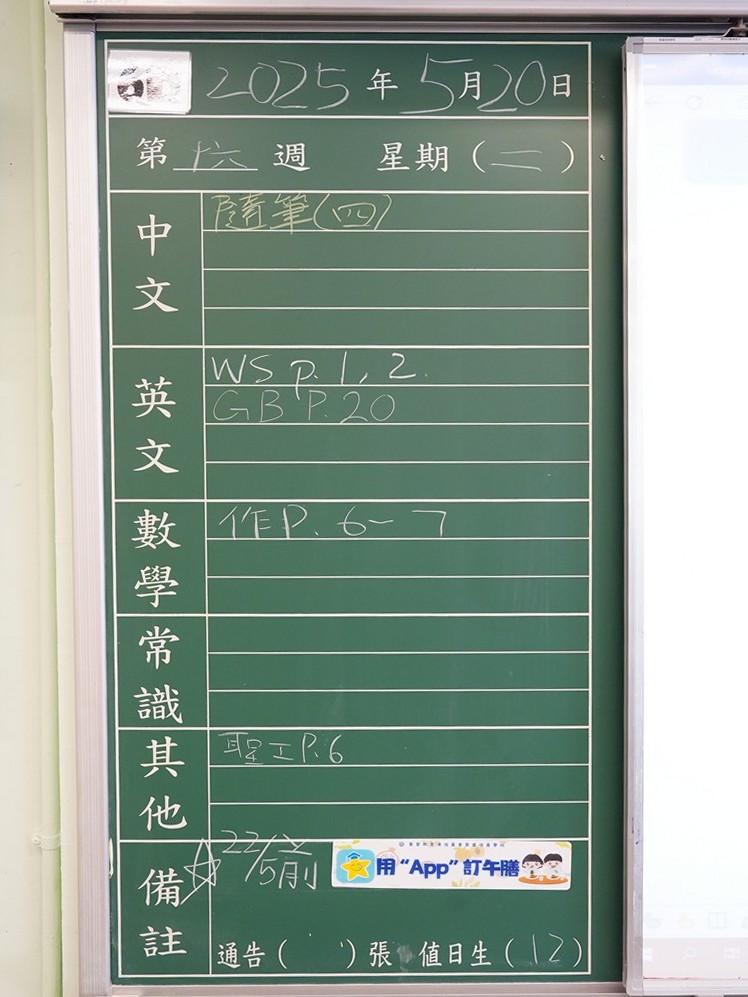 2025年5月20日
第十六週 星期(二)
中文
隨筆(四)
英文
WS p.1,2.
GB P.20
數學
作P.6-7
常識
其他
聖工P.6
備註
☆22/5前
用“App”訂午膳
通告( )張 值日生(12)